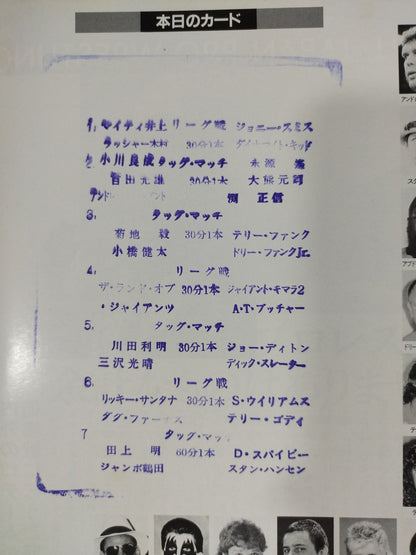 本日のカード
1, マイティ井上 リーグ戦 ジョニー・スミス
ラッシャー木村 30分1本 ダイナマイト・キッド
2. 小川良成 タッグ・マッチ 永源 遙
百田光雄 30分1本 大熊元司
アンドレ 渕 正信
3. タッグ・マッチ
菊地 毅 30分1本 テリー・ファンク
小橋健太 ドリー・ファンクJr.
4. リーグ戦
ザ・ランド・オブ 30分1本 ジャイアント・キマラ2
・ジャイアンツ A・T・ブッチャー
5. タッグ・マッチ
川田利明 30分1本 ジョー・ディトン
三沢光晴 ディック・スレーター
6. リーグ戦
リッキー・サンタナ 30分1本 S・ウイリアムス
ダグ・ファーナス テリー・ゴディ
7 タッグ・マッチ
田上 明 60分1本 D・スパイビー
ジャンボ鶴田 スタン・ハンセン